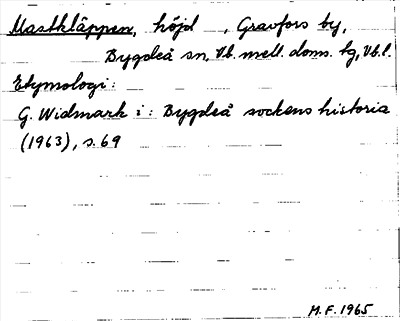 Mastkläppen, höjd , Gravfors by,
Bygdeå sn, Vb. mell. doms. tg, Vb.l.
Etymologi:
G. Widmark i: Bygdeå sockens historia
(1963), s. 69
M.F. 1965